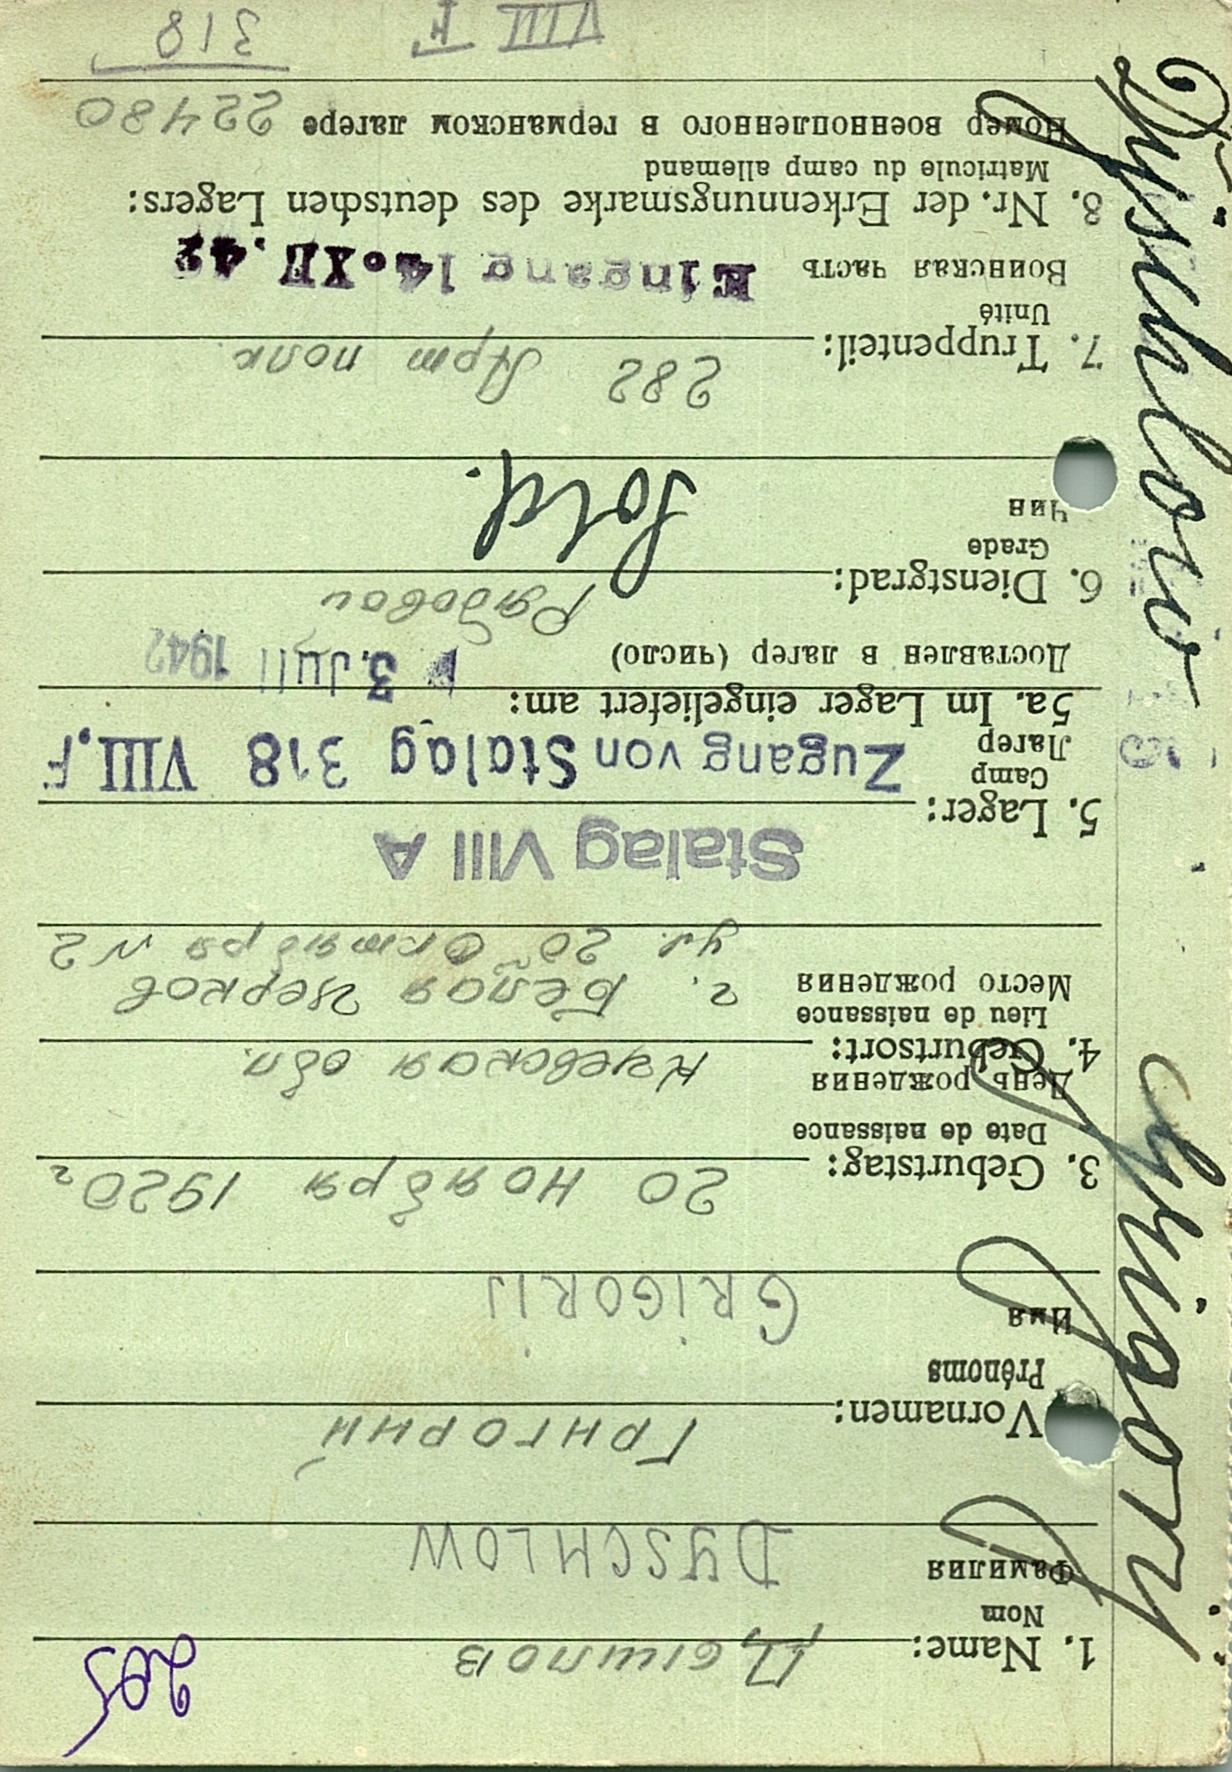 205
1. Name: Дышлов
Nom
Фамилия DYSCHLOW
Vornamen: Григорий
Prénoms
Имя GRIGORIJ
3. Geburtstag: 20 ноября 1920 г
Date de naissance
День рождения Киевская обл.
4. Geburtsort:
Lieu de naissance
Место рождения г. Белая Церков
ул. 20 Октября N 2
Stalag VIII A
5. Lager:
Camp
Лагер Zugang von Stalag 318 VIII.F
5a. Im Lager eingeliefert am:
Доставлен в лагер (число) 3. Juli 1942
Рядовой
6. Dienstgrad: Sold.
Grade
Чин
282 Арт полк
7. Truppenteil:
Unité
Воинская часть Eingang 14. XII. 42
8. Nr. der Erkennungsmarke des deutschen Lagers:
Matricule du camp allemand
Номер военнопленного в германском лагере 22480
VIII F 318
Dyschlow Grigorij